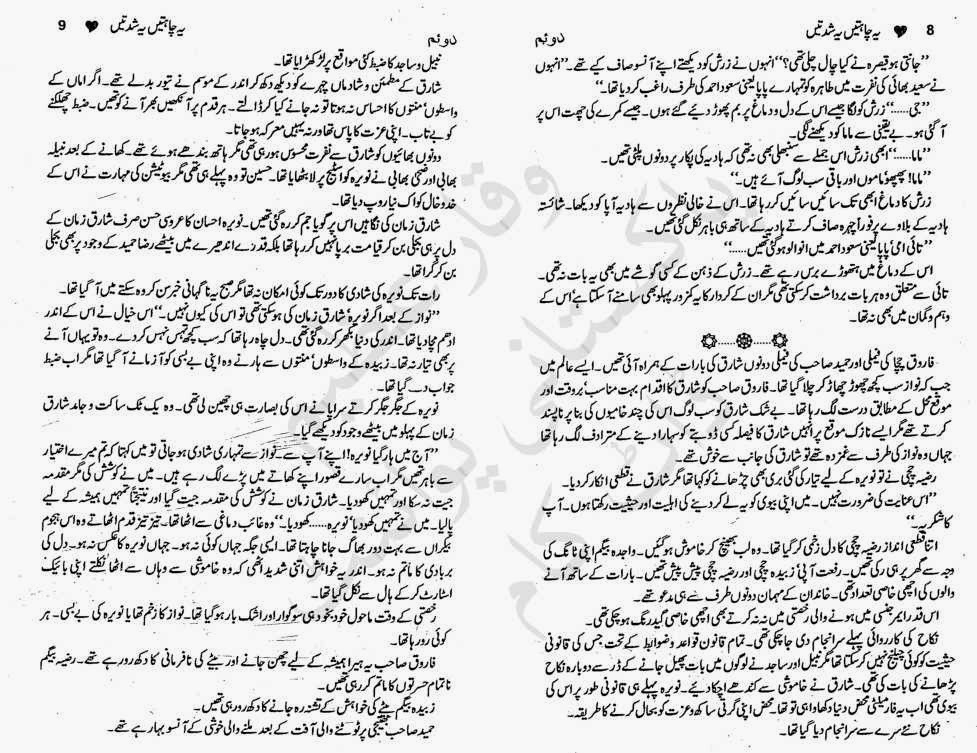 8 ♥ یہ چاہتیں یہ شدتیں
دوئم
’’جانتی ہو قیصرہ نے کیا چال چلی تھی؟‘‘ انہوں نے زرش کو دیکھتے اپنے آنسو صاف کیے تھے۔ ’’انہوں
نے سعید بھائی کی نفرت میں طاہرہ کو تمہارے پاپا یعنی سعود احمد کی طرف راغب کر دیا تھا۔‘‘
’’جی......‘‘ زرش کو لگا جیسے اس کے دل و دماغ پر بم پھوڑ دیئے گئے ہوں۔ جیسے کمرے کی چھت اس پر
آ گئی ہو۔ بے یقینی سے ماما کو دیکھنے لگی۔
’’ماما......‘‘ ابھی زرش اس جملے سے سنبھلی بھی نہ تھی کہ ہادیہ کی پکار پر دونوں پلٹی تھیں۔
’’ماما! پھپھو، ماموں اور باقی سب لوگ آئے ہیں۔‘‘
زرش کا دماغ ابھی تک سائیں سائیں کر رہا تھا۔ اس نے خالی نظروں سے ہادیہ آپا کو دیکھا۔ شائستہ
ہادیہ کے بلاوے پر فوراً چہرہ صاف کرتے ہادیہ کے ساتھ ہی باہر نکل گئی تھیں۔
’’تائی امی‘ پاپا یعنی سعود احمد میں انوالو ہو گئی تھیں......‘‘
اس کے دماغ میں ہتھوڑے برس رہے تھے۔ زرش کے ذہن کے کسی گوشے میں بھی یہ بات نہ تھی۔
تائی سے متعلق وہ ہر بات برداشت کر سکتی تھی مگر ان کے کردار کا یہ کمزور پہلو بھی سامنے آ سکتا ہے‘ اس کے
وہم و گمان میں بھی نہ تھا۔
فاروق چچا کی فیملی اور حمید صاحب کی فیملی دونوں شارق کی بارات کے ہمراہ آئی تھیں۔ ایسے عالم میں
جب کہ نواز سب کچھ چھوڑ چھاڑ کر چلا گیا تھا۔ فاروق صاحب کو شارق کا اقدام بہت مناسب‘ بروقت اور
موقع محل کے مطابق درست لگ رہا تھا۔ بے شک شارق کو سب لوگ اس کی چند خامیوں کی بنا پر ناپسند
کرتے تھے مگر ایسے نازک موقع پر انہیں شارق کا فیصلہ کسی ڈوبتے کو سہارا دینے کے مترادف لگ رہا تھا
جہاں وہ نواز کی طرف سے غمزدہ تھے تو شارق کی جانب سے خوش تھے۔
رضیہ چچی نے تو نویرہ کے لیے تیار کی گئی بری بھی چڑھانے کو کہا تھا مگر شارق نے قطعی انکار کر دیا۔
’’اس عنایت کی ضرورت نہیں۔ میں اپنی بیوی کو یہ لے کر دینے کی اہلیت اور حیثیت رکھتا ہوں۔ آپ
کا شکریہ۔‘‘
اتنا قطعی انداز رضیہ چچی کا دل زخمی کر گیا تھا۔ وہ لب بھینچ کر خاموش ہو گئیں۔ واجدہ بیگم اپنی ٹانگ کی
وجہ سے گھر پر ہی رکی تھیں۔ رفعت آپی‘ زبیدہ چچی اور رضیہ چچی پیش پیش تھیں۔ بارات کے ساتھ آنے
والوں کی اچھی خاصی تعداد تھی۔ خاندان کے مہمان دونوں طرف سے ہی مدعو تھے۔
اس قدر ایمرجنسی میں ہونے والی رخصتی میں نہ نہ کرتے بھی اچھی خاصی گیدرنگ ہو چکی تھی۔
نکاح کی کارروائی پہلے سرانجام دی جا چکی تھی۔ تمام قانون قواعد و ضوابط کے تحت جس کی قانونی
حیثیت کو کوئی چیلنج نہیں کر سکتا تھا مگر نبیل اور ساجد نے لوگوں میں بات پھیل جانے کے ڈر سے دوبارہ نکاح
پڑھانے کی بات کی تھی۔ شارق نے خاموشی سے کندھے اچکا دیئے۔ نویرہ پہلے ہی قانونی طور پر اس کی
بیوی تھی اب یہ فارمیلٹی محض دنیا دکھاوا ہی تو تھا۔ محض اپنی گرتی ساکھ و عزت کو بحال کرنے کا طریقہ۔
نکاح نئے سرے سے سرانجام دیا گیا تھا۔
یہ چاہتیں یہ شدتیں ♥ 9
دوئم
نبیل و ساجد کا ضبط کئی مواقع پر لڑکھڑایا تھا۔
شارق کے مطمئن و شاداں چہرے کو دیکھ دیکھ کر اندر کے موسم نے تیور بدلے تھے۔ اگر اماں کے
واسطوں‘ منتوں کا احساس نہ ہوتا تو نہ جانے کیا کر ڈالتے۔ ہر قدم پر آنکھیں بھر آنے کو تھیں۔ ضبط چھلکنے
کو بے تاب۔ اپنی عزت کا پاس تھا ورنہ یہیں معرکہ ہو جاتا۔
دونوں بھائیوں کو شارق سے نفرت محسوس ہو رہی تھی مگر ہاتھ بندھے ہوئے تھے۔ کھانے کے بعد نبیلہ
بھابی اور ضحیٰ بھابی نے نویرہ کو اسٹیج پر لا بٹھایا تھا۔ حسین تو وہ پہلے ہی تھی مگر بیوٹیشن کی مہارت نے اس کے
خدوخال کو اک نیا روپ دیا تھا۔
شارق زمان کی نگاہیں اس پر گویا جم کر رہ گئی تھیں۔ نویرہ احسان کا عروسی حسن صرف شارق زمان کے
دل پر ہی بجلی بن کر قیامت برپا نہیں کر رہا تھا بلکہ قدرے اندھیرے میں بیٹھے رضا حمید کے وجود پر بھی بجلی
بن کر گرا تھا۔
رات تک نویرہ کی شادی کا دور تک کوئی امکان نہ تھا مگر صبح یہ ناگہانی خبر سن کر وہ سکتے میں آ گیا تھا۔
’’نواز کے بعد اگر نویرہ‘ شارق زمان کی ہو سکتی تھی تو اس کی کیوں نہیں۔‘‘ اس خیال نے اس کے اندر
ادھم مچا دیا تھا۔ اندر کی دنیا بکھر کر رہ گئی تھی۔ دل چاہ رہا تھا کہ سب کچھ تہس نہس کر دے۔ وہ تو یہاں آنے
پر بھی تیار نہ تھا۔ زبیدہ کے واسطوں‘ منتوں سے ہارنے وہ اپنی بے بسی کو آزمانے آ گیا تھا مگر اب ضبط
جواب دے گیا تھا۔
نویرہ کے جگر جگر کرتے سراپا نے اس کی بصارت ہی چھین لی تھی۔ وہ یک ٹک ساکت و جامد شارق
زمان کے پہلو میں بیٹھے وجود کو دیکھے گیا۔
’’آج میں ہار گیا نویرہ! اپنے آپ سے۔ نواز سے تمہاری شادی ہو جاتی تو میں کہتا کہ تم میرے اختیار
سے باہر تھیں مگر اب سارے قصور اپنے کھاتے میں پڑے لگ رہے ہیں۔ میں نے کوشش کی مگر مقدمہ
جیت نہ سکا اور تمہیں کھو دیا۔ شارق زمان نے کوشش کی مقدمہ جیت گیا اور نتیجتاً تمہیں ہمیشہ کے لیے
پا لیا۔ میں نے تمہیں کھو دیا نویرہ......کھو دیا۔‘‘ وہ غائب دماغی سے اٹھا تھا۔ تیز تیز قدم اٹھاتے وہ اس ہجوم
بیکراں سے بہت دور بھاگ جانا چاہتا تھا۔ ایسی جگہ جہاں کوئی نہ ہو۔ جہاں نویرہ کا عکس نہ ہو۔ دل کی
بربادی کا ماتم نہ ہو۔ اندر یہ خواہش اتنی شدید اٹھی کہ وہ خاموشی سے وہاں سے اٹھا نکلتے اپنی بائیک
اسٹارٹ کر کے ہال سے نکل گیا تھا۔
رخصتی کے وقت ماحول خود بخود ہی سوگوار اور اشک بار ہو گیا تھا۔ نواز کا زخم تھا یا نویرہ کی بے بسی۔ ہر
کوئی رو رہا تھا۔
فاروق صاحب یہ ہیرا ہمیشہ کے لیے چھن جانے اور بیٹے کی نافرمانی کا دکھ رو رہے تھے۔ رضیہ بیگم
ناتمام حسرتوں کا ماتم کر رہی تھیں۔
زبیدہ بیگم بیٹے کی خواہش کے تشنہ رہ جانے کا دکھ رو رہی تھیں۔
حمید صاحب بھتیجی پر ٹوٹنے والی آفت کے بعد ملنے والی خوشی کے آنسو بہا رہے تھے۔